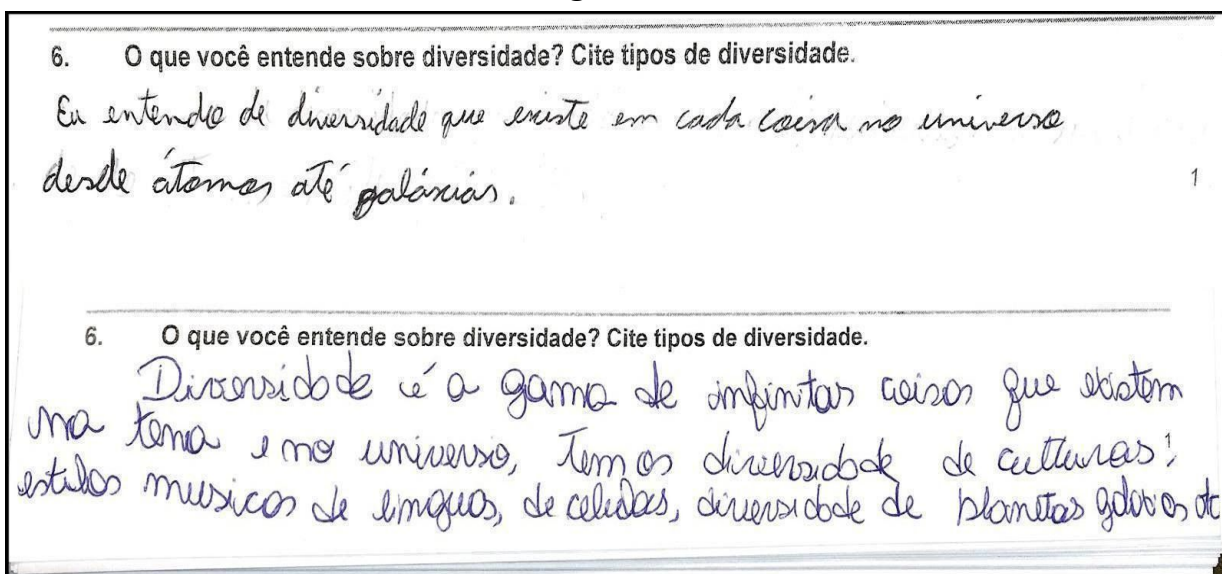 6. O que você entende sobre diversidade? Cite tipos de diversidade.
Eu entendo de diversidade que existe em cada coisa no universo
desde átomos até galáxias.
1
6. O que você entende sobre diversidade? Cite tipos de diversidade.
Diversidade é a gama de infinitas coisas que existem
na terra e no universo, Temos diversidade de culturas,
estilos musicas de linguas, de celulas, diversidade de planetas